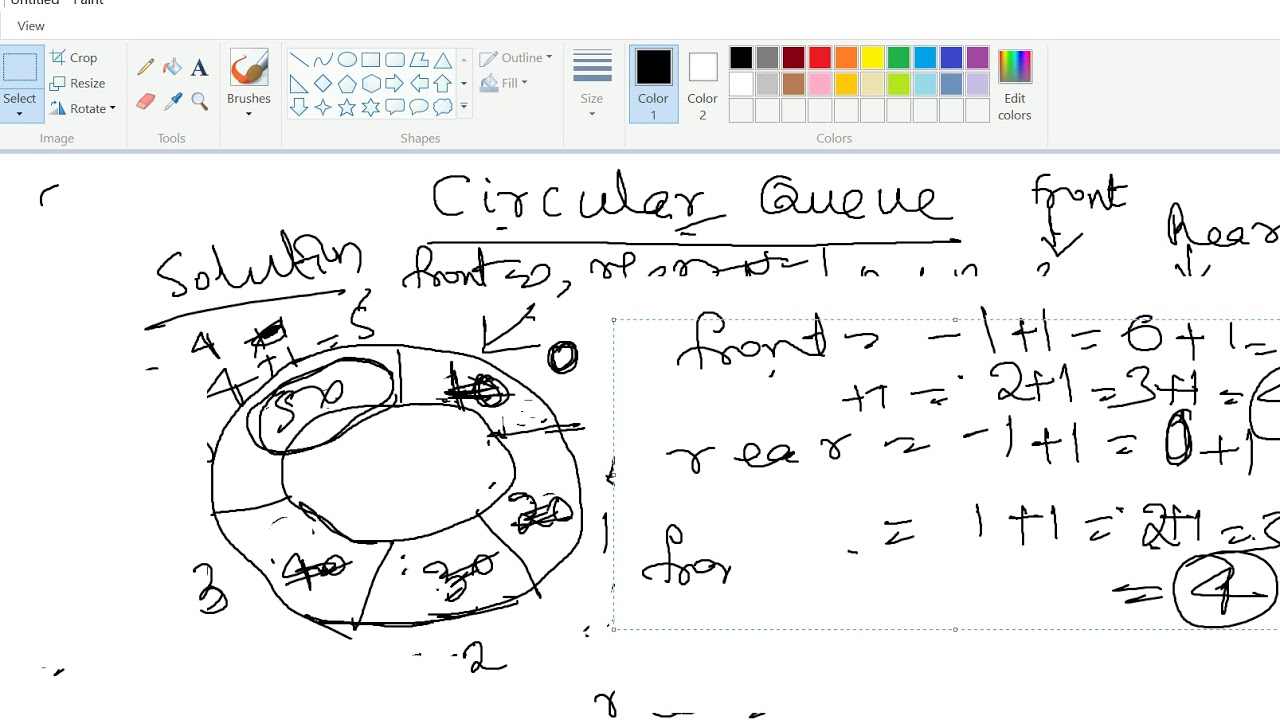 View
Crop
Resize
Rotate
Select
Image
A
Tools
Brushes
Shapes
Outline
Fill
Size
Color
1
Color
2
Edit
colors
Colors
Circular Queue
front
Rear
Solution
front =
4
4 +1 = 5
0
50
10
20
30
40
3
2
1
front = -1+1 = 0+1 =
+1 = 2+1 = 3+1 =
rear = -1+1 = 0+1
= 1+1 = 2+1 = 3
fror
= 4
r